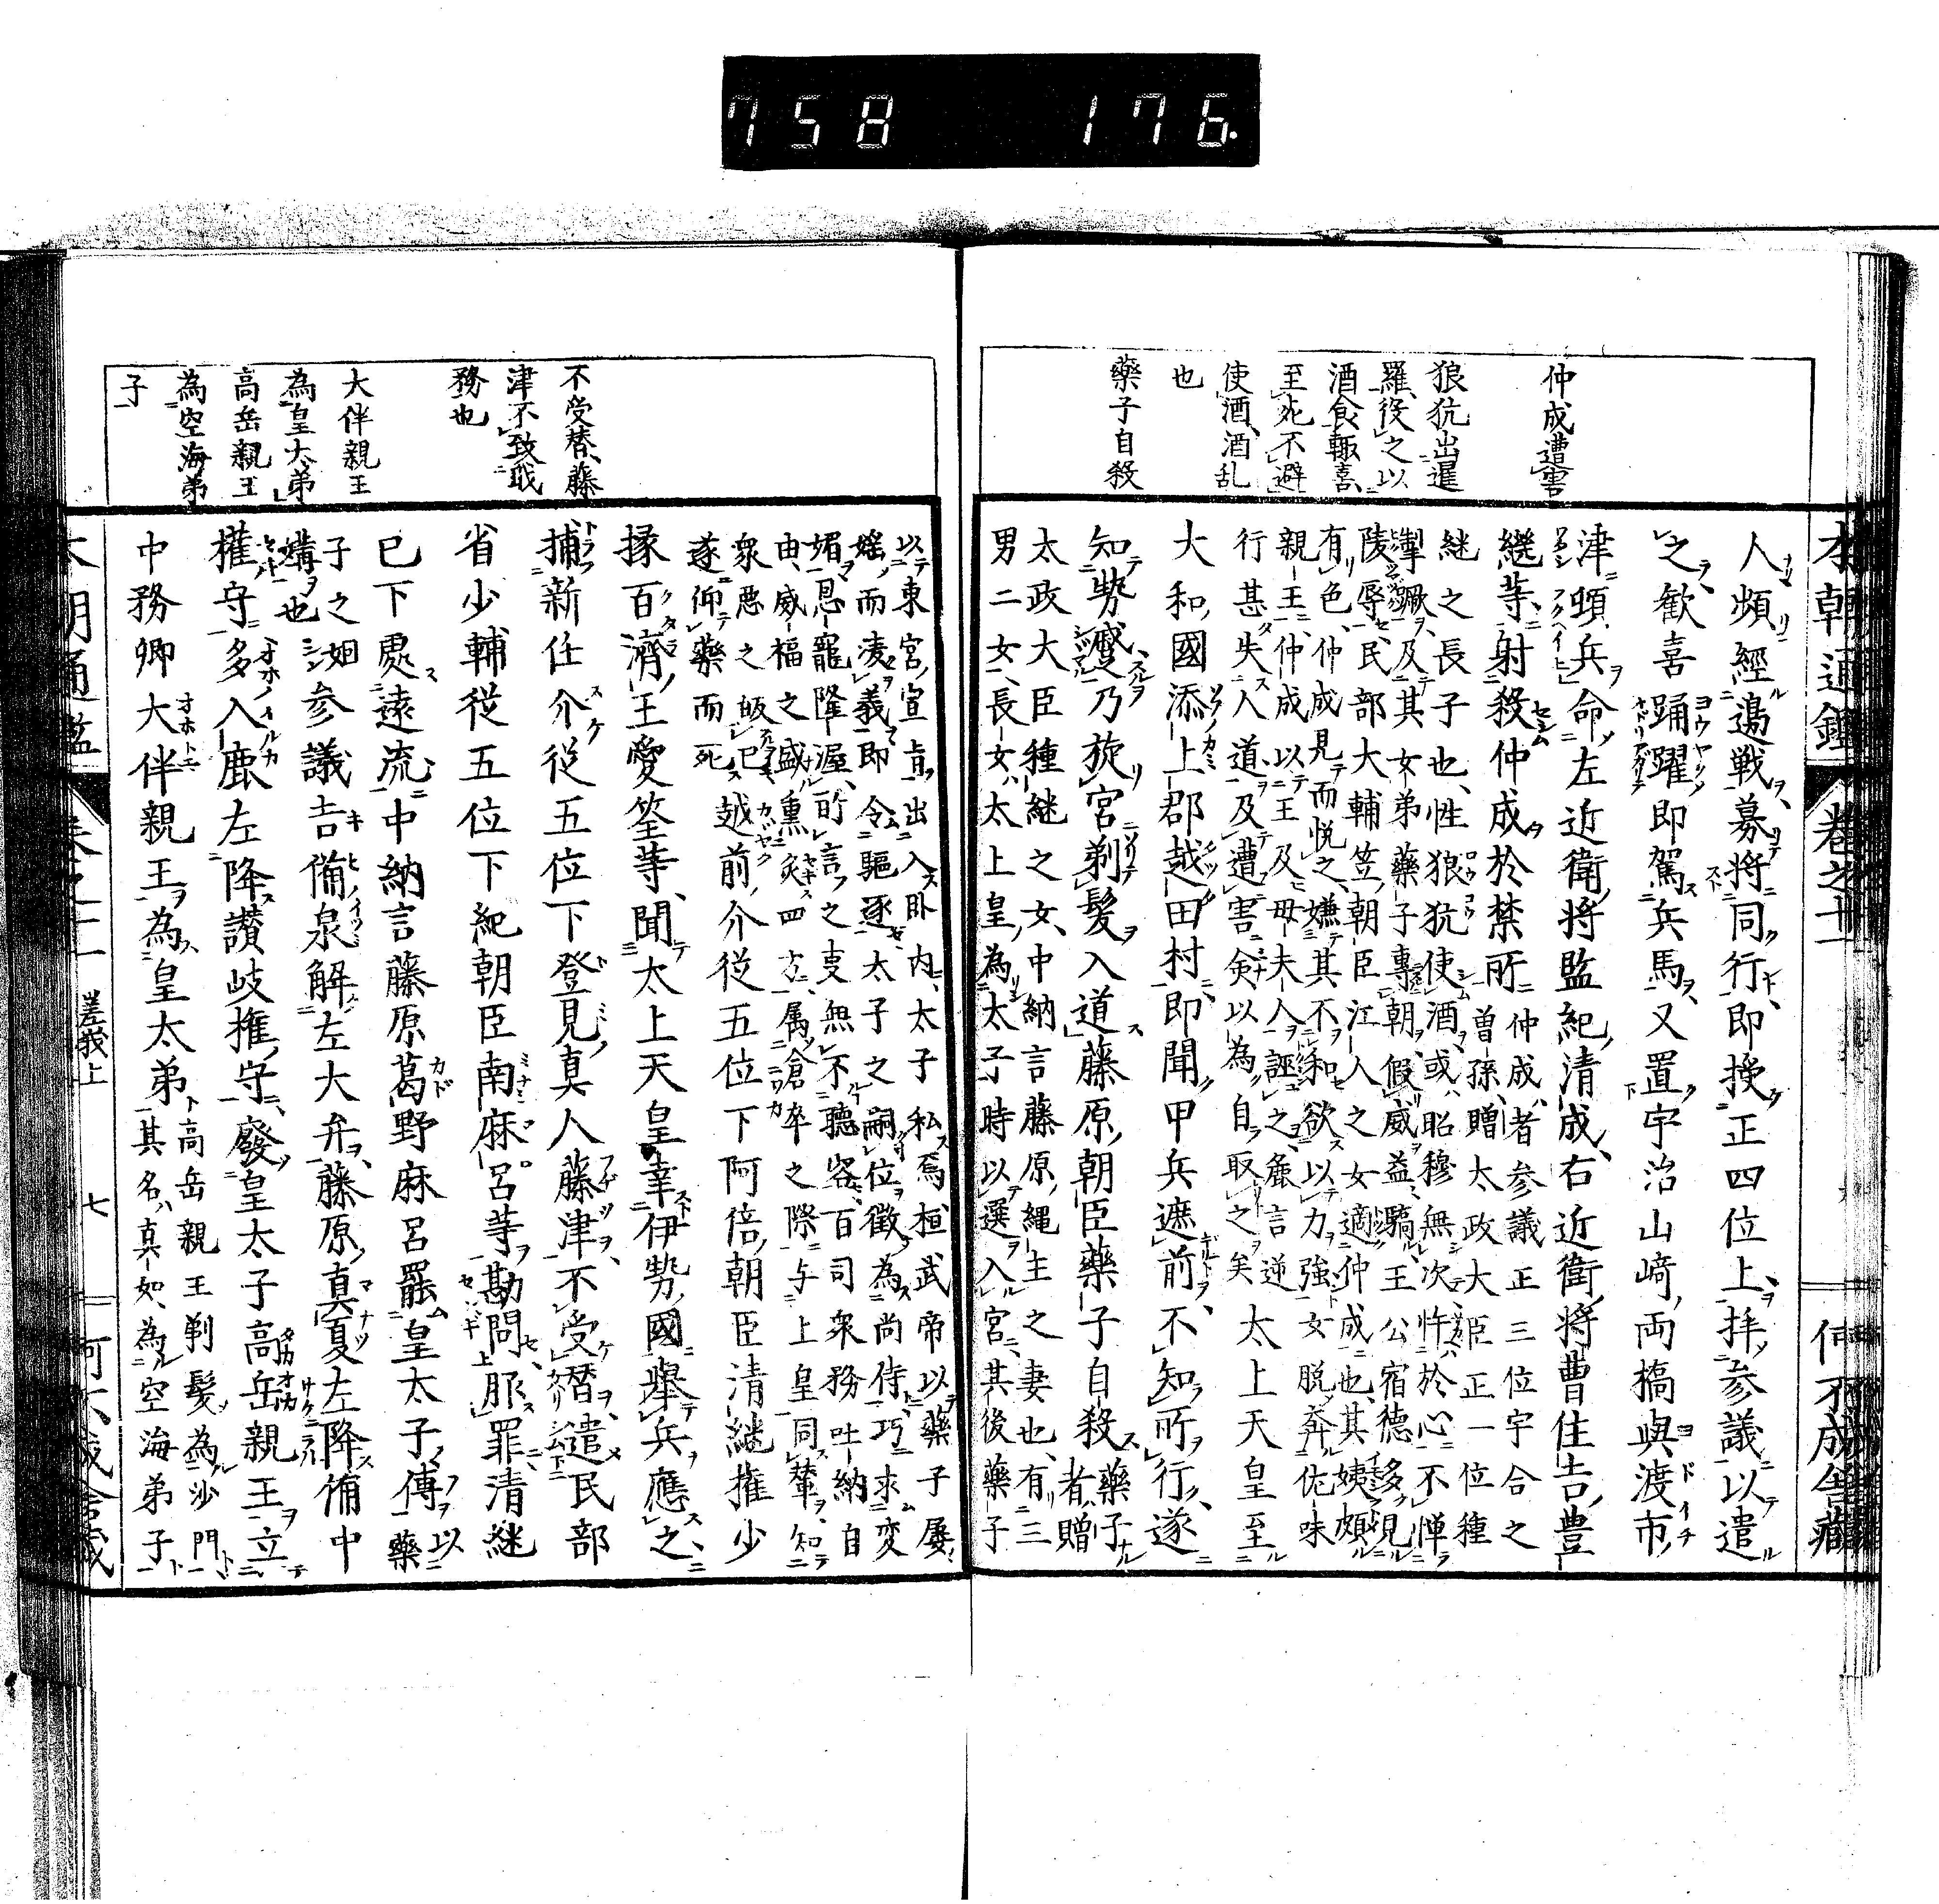 758 176.
本朝通鑑 卷之廿一
仲成遭害
狼抗出暹
羅、役之以
酒食輙喜、
至死不避
使酒、酒乱
也
藥子自殺
人頻經邊戰募將同行即授正四位上、拜參議以遣
之歡喜踊躍即駕兵馬又置宇治山﨑両橋與渡市
津頓兵命左近衛將監紀清成、右近衛將曹住吉豊
繼等射殺仲成於禁所仲成者参議正三位宇合之
曽孫贈太政大臣正一位種
継之長子也、性狼抗使酒、或昭穆無次忤於心不憚
掣蹶及其女弟藥子專朝假威益驕王公宿徳多見
陵辱民部大輔笠朝臣江人之女適仲成也其姨頗
有色、仲成見而悦之、嫌其不和欲以力強女脱奔佐味
親王仲成以王及母夫人誣之麁言逆
行甚失人道及遭害僉以為自取之矣 太上天皇至
大和國添上郡越田村即聞甲兵遮前不知所行遂
知勢蹙乃旋宮剃髮入道藤原朝臣藥子自殺 藥子
者贈
太政大臣種継之女中納言藤原縄主之妻也有三
男二女長女太上皇為太子時以選入宮其後藥子
以東宮宣旨出入卧内太子私焉桓武帝以藥子屡
婬而凌義即令驅逐太子之嗣位徵為尚侍巧求変
媚恩寵隆渥所言之事無不聽容百司衆務吐納自
由威福之盛熏灸四方属倉卒之際与上皇同輦知
衆惡之皈已
遂仰藥而死 越前介從五位下阿倍朝臣清継權少
掾百濟王愛筌等、聞太上天皇幸伊勢國舉兵應之
捕新任介從五位下登見真人藤津不受暦遣民部
省少輔從五位下紀朝臣南麻呂等勘問服罪清継
已下處遠流中納言藤原葛野麻呂罷皇太子傅以藥
子之姻
媾也 参議吉備泉解左大弁藤原真夏左降備中
權守多入鹿左降讃岐権守廢皇太子高岳親王立
中務卿大伴親王為皇太弟高岳親王剃髮為沙門
其名真如、為空海弟子
不受替、藤
津不致戝
務也
大伴親王
為皇大弟
高岳親王
為空海弟
子
本朝通鑑 卷之廿一 嵯峨上 七